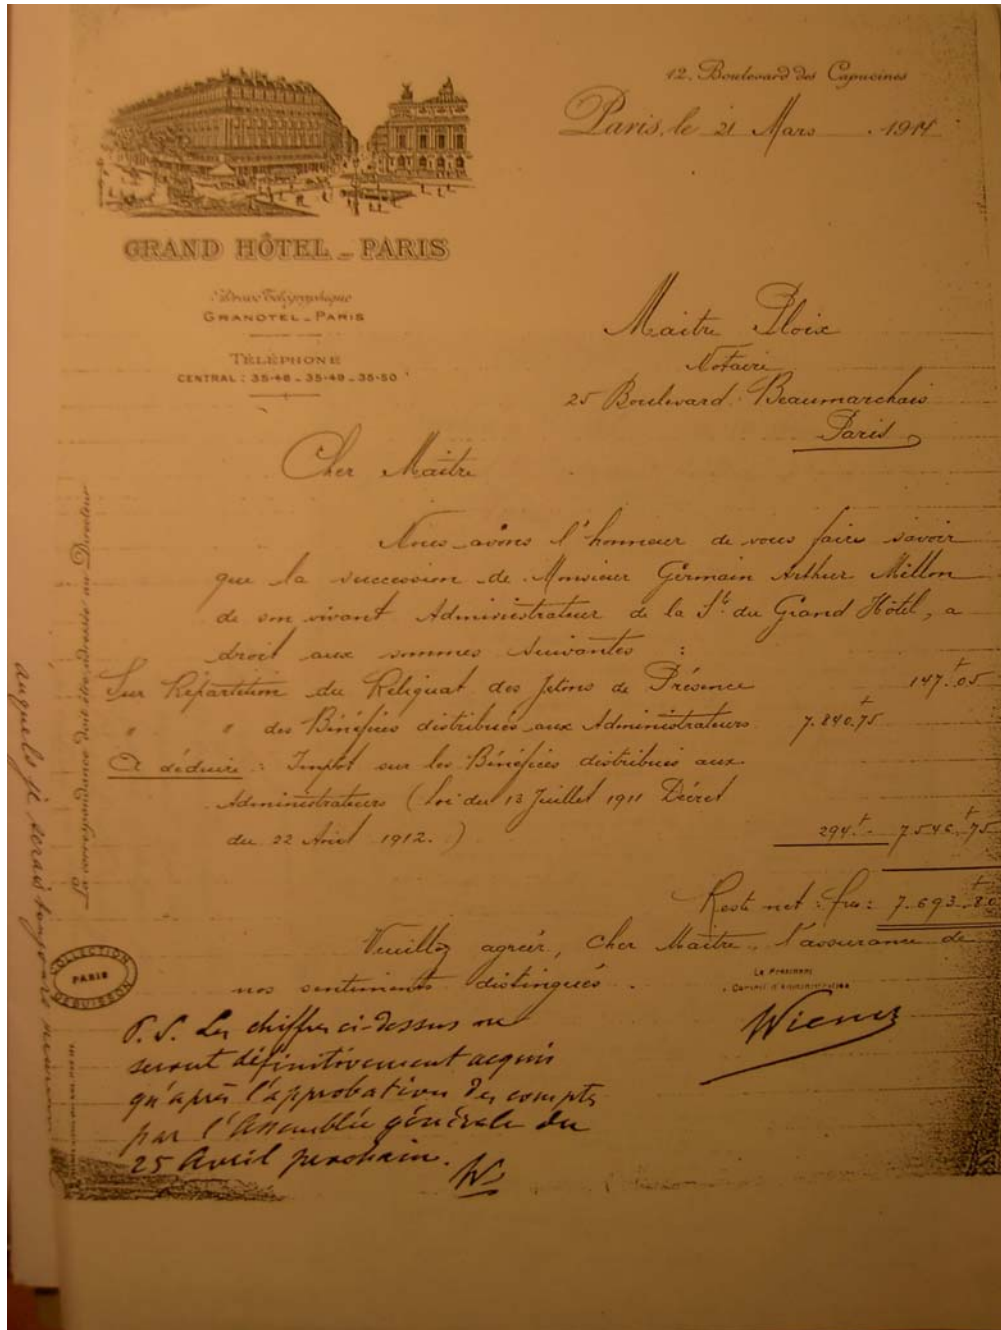 12, Boulevard des Capucines
Paris, le 21 Mars 1914
GRAND HÔTEL - PARIS
Adresse Télégraphique
GRANOTEL - PARIS
TÉLÉPHONE
CENTRAL : 35-48 - 35-49 - 35-50
Maitre Ploix
Notaire
25 Boulevard Beaumarchais
Paris
Cher Maitre
Nous avons l'honneur de vous faire savoir
que la succession de Monsieur Germain Arthur Millon
de son vivant Administrateur de la Sté du Grand Hôtel, a
droit aux sommes suivantes :
Sur Répartition du Reliquat des Jetons de Présence 147.05
" " des Bénéfices distribués aux Administrateurs 7.840.75
A déduire : Impôt sur les Bénéfices distribués aux
Administrateurs (Loi du 13 Juillet 1911 Décret
du 22 Avril 1912.) 294.- 7.546.75
Reste net : frs : 7.693.80
Veuillez agréer, Cher Maitre, l'assurance de
nos sentiments distingués.
Le Président
Conseil d'Administration
Wiener
P.S. Les chiffres ci-dessus ne
seront définitivement acquis
qu'après l'approbation des comptes
par l'Assemblée générale du
25 Avril prochain.
W
La correspondance doit être adressée au Directeur
COLLECTION
PARIS
DEBUISSON
auquels je serais toujours